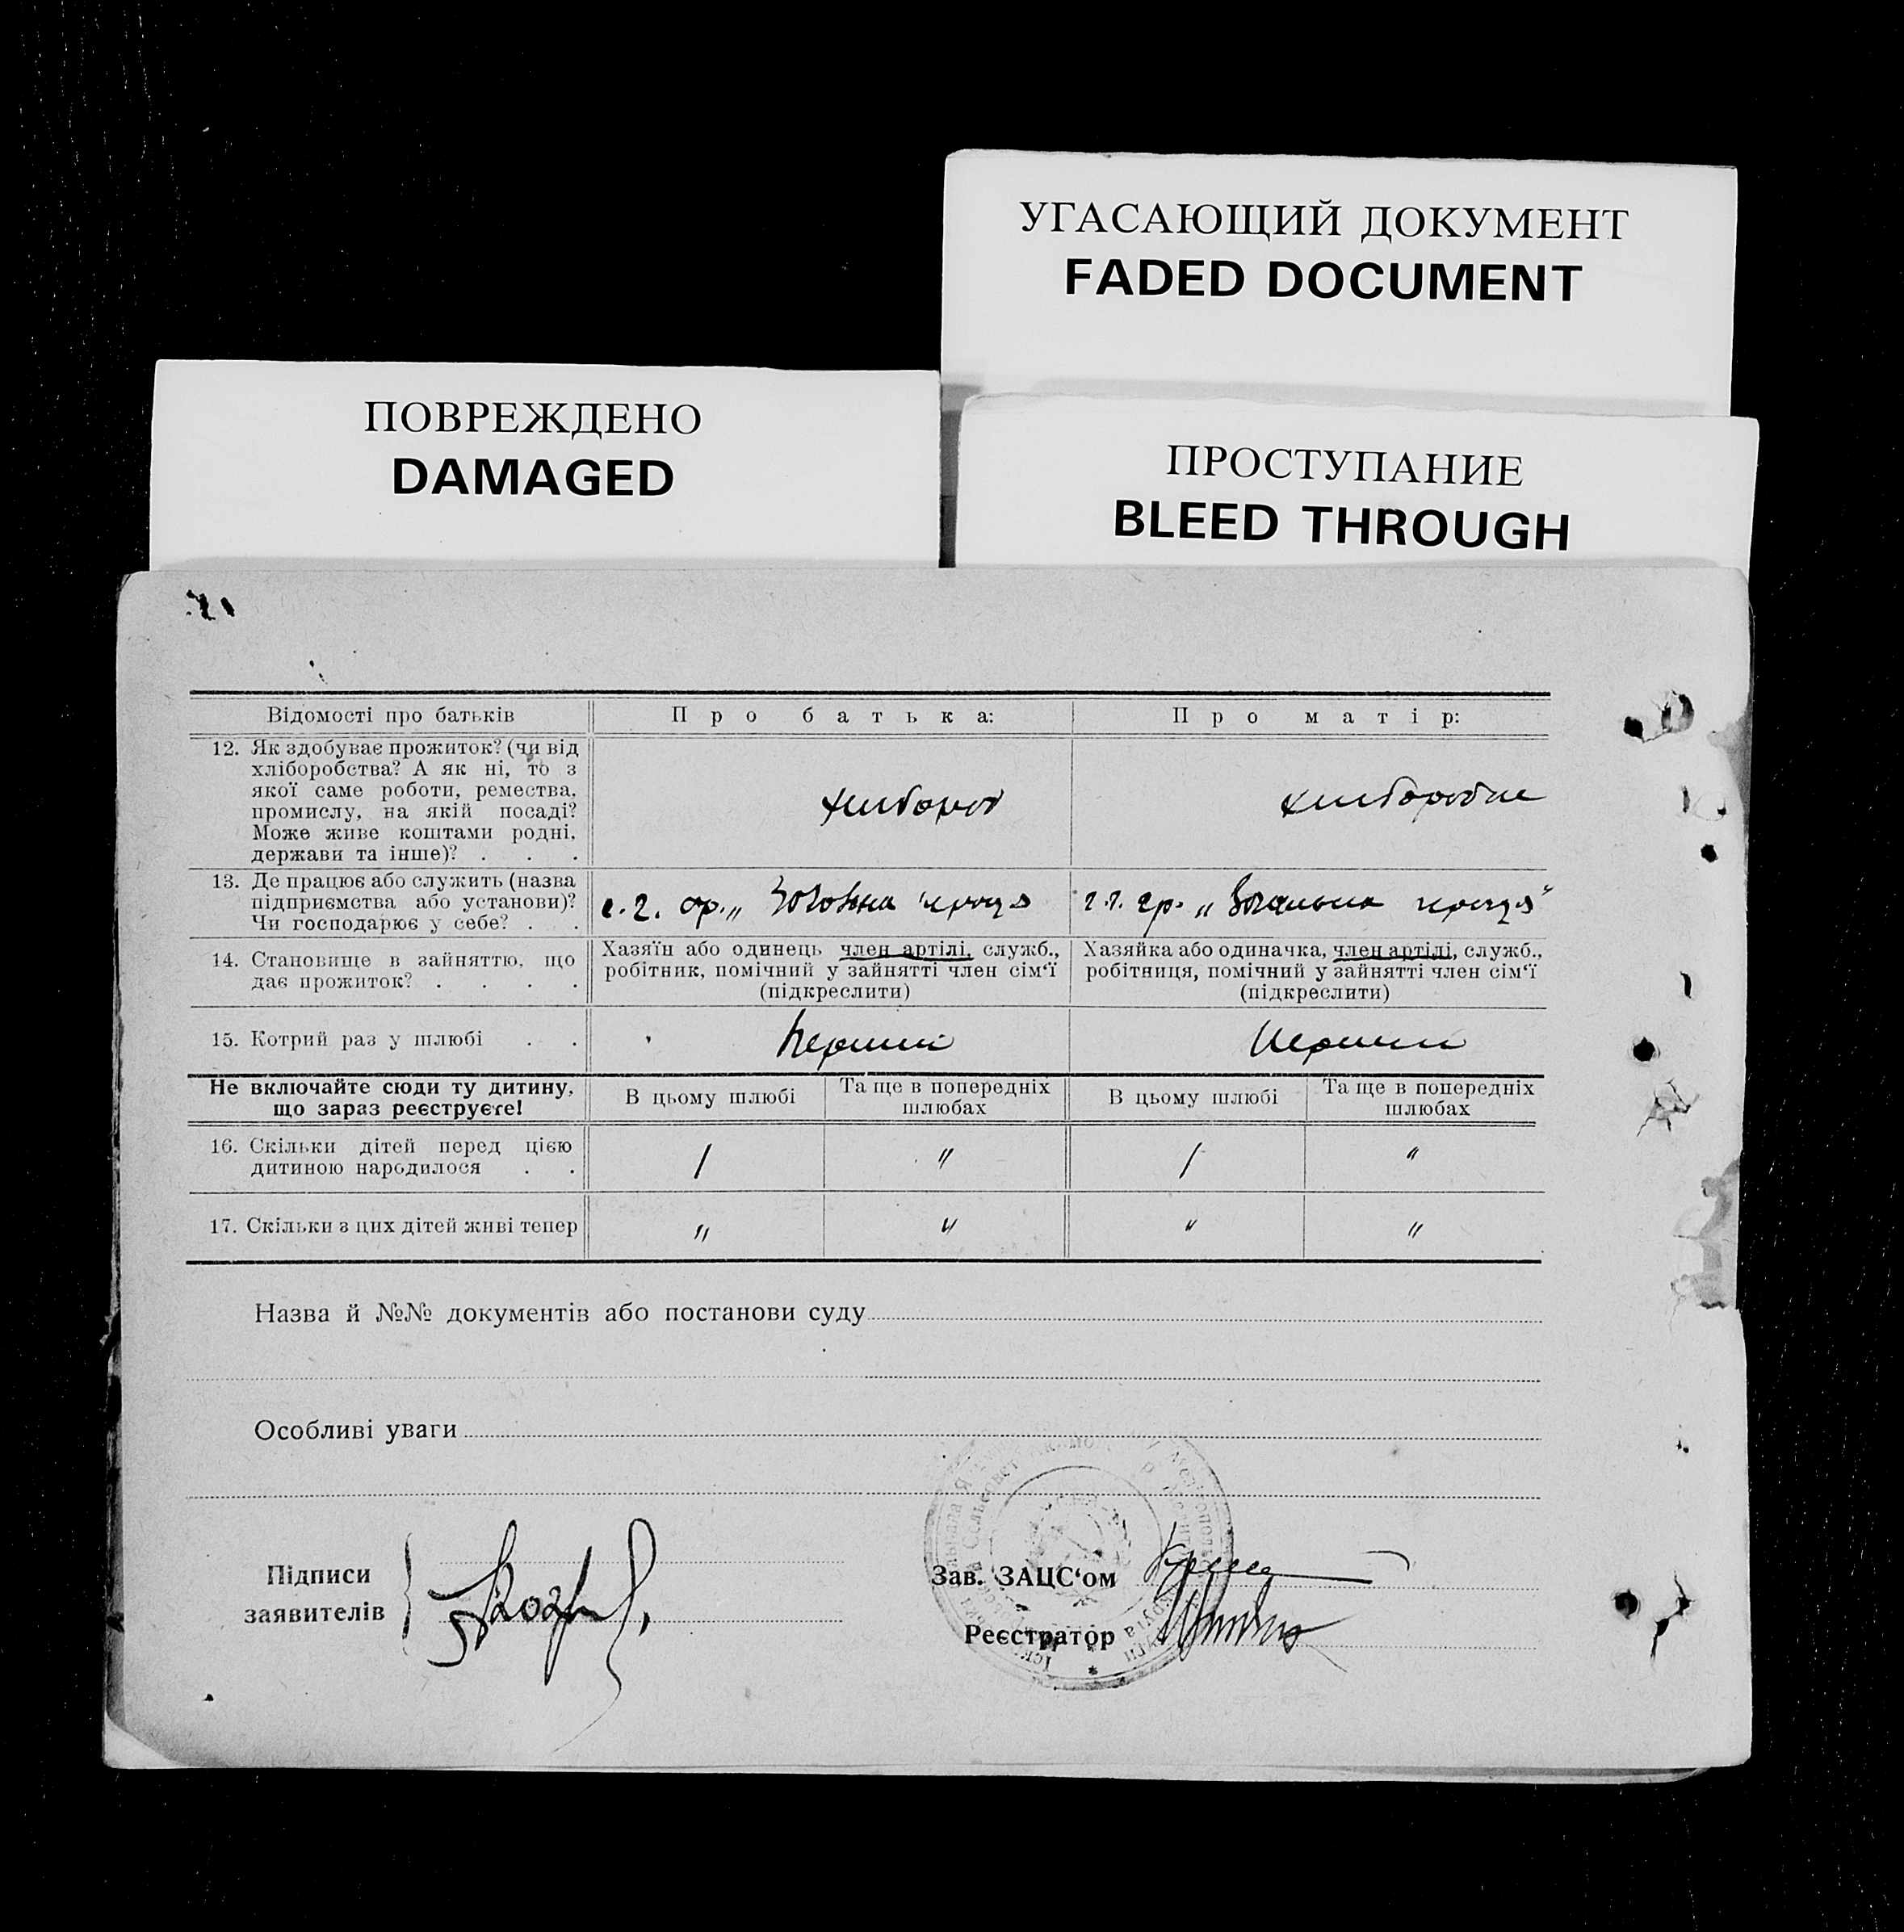 УГАСАЮЩИЙ ДОКУМЕНТ
FADED DOCUMENT
ПОВРЕЖДЕНО
DAMAGED
ПРОСТУПАНИЕ
BLEED THROUGH
Відомості про батьків
Про батька:
Про матір:
12. Як здобуває прожиток? (чи від
хліборобства? А як ні, то з
якої саме роботи, ремества,
промислу, на якій посаді?
Може живе коштами родні,
держави та інше)? . . .
хлибороб
хлиборобка
13. Де працює або служить (назва
підприємства або установи)?
Чи господарює у себе? . .
праця
„ Загальна праця"
14. Становище в зайняттю, що
дає прожиток? . . . .
Хазяїн або одинець член артілі, служб.,
робітник, помічний у зайнятті член сім'ї
(підкреслити)
Хазяйка або одиначка, член артілі, служб.,
робітниця, помічний у зайнятті член сім'ї
(підкреслити)
15. Котрий раз у шлюбі . .
Перший
Перший
Не включайте сюди ту дитину,
що зараз реєструєте!
В цьому шлюбі
Та ще в попередніх
шлюбах
В цьому шлюбі
Та ще в попередніх
шлюбах
16. Скільки дітей перед цією
дитиною народилося . .
/ " / "
17. Скільки з цих дітей живі тепер
" " " "
Назва й №№ документів або постанови суду
Особливі уваги
Підписи
заявителів
Зав. ЗАЦС'ом
Реєстратор